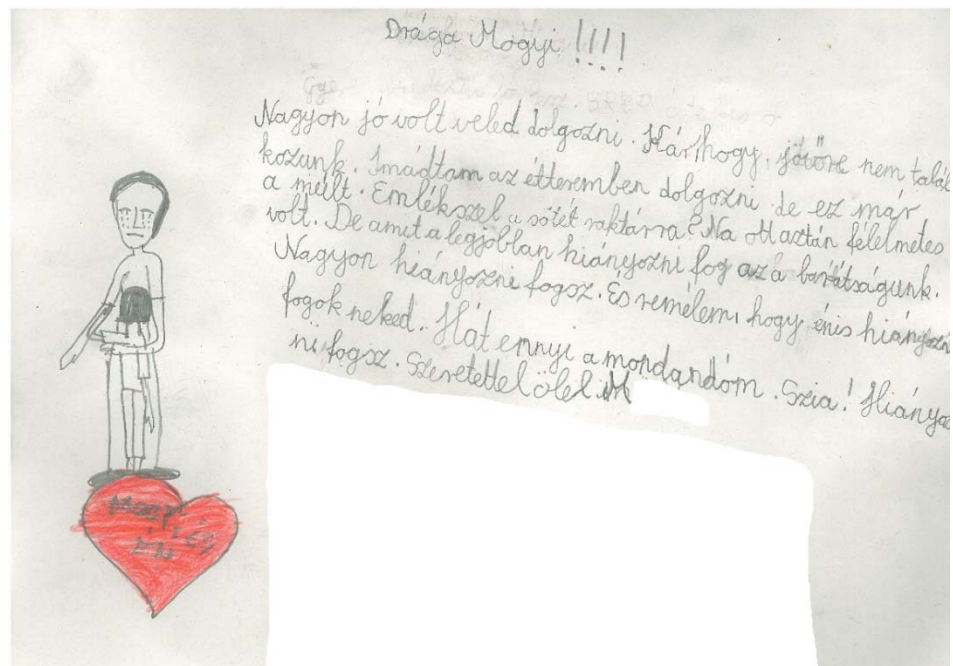 Drága Mogyi !!!!
Nagyon jó volt veled dolgozni. Kár hogy, jövőre nem talál
kozunk. Imádtam az étteremben dolgozni de ez már
a múlt. Emlékszel a sötét raktárra? Na ott aztán félelmetes
volt. De amit a legjobban hiányozni fog az a barátságunk.
Nagyon hiányozni fogsz. És remélem, hogy énis hiányozni
fogok neked. Hát ennyi a mondandóm. Szia! Hiányoz
ni fogsz. Szeretettel ölel M
és
én